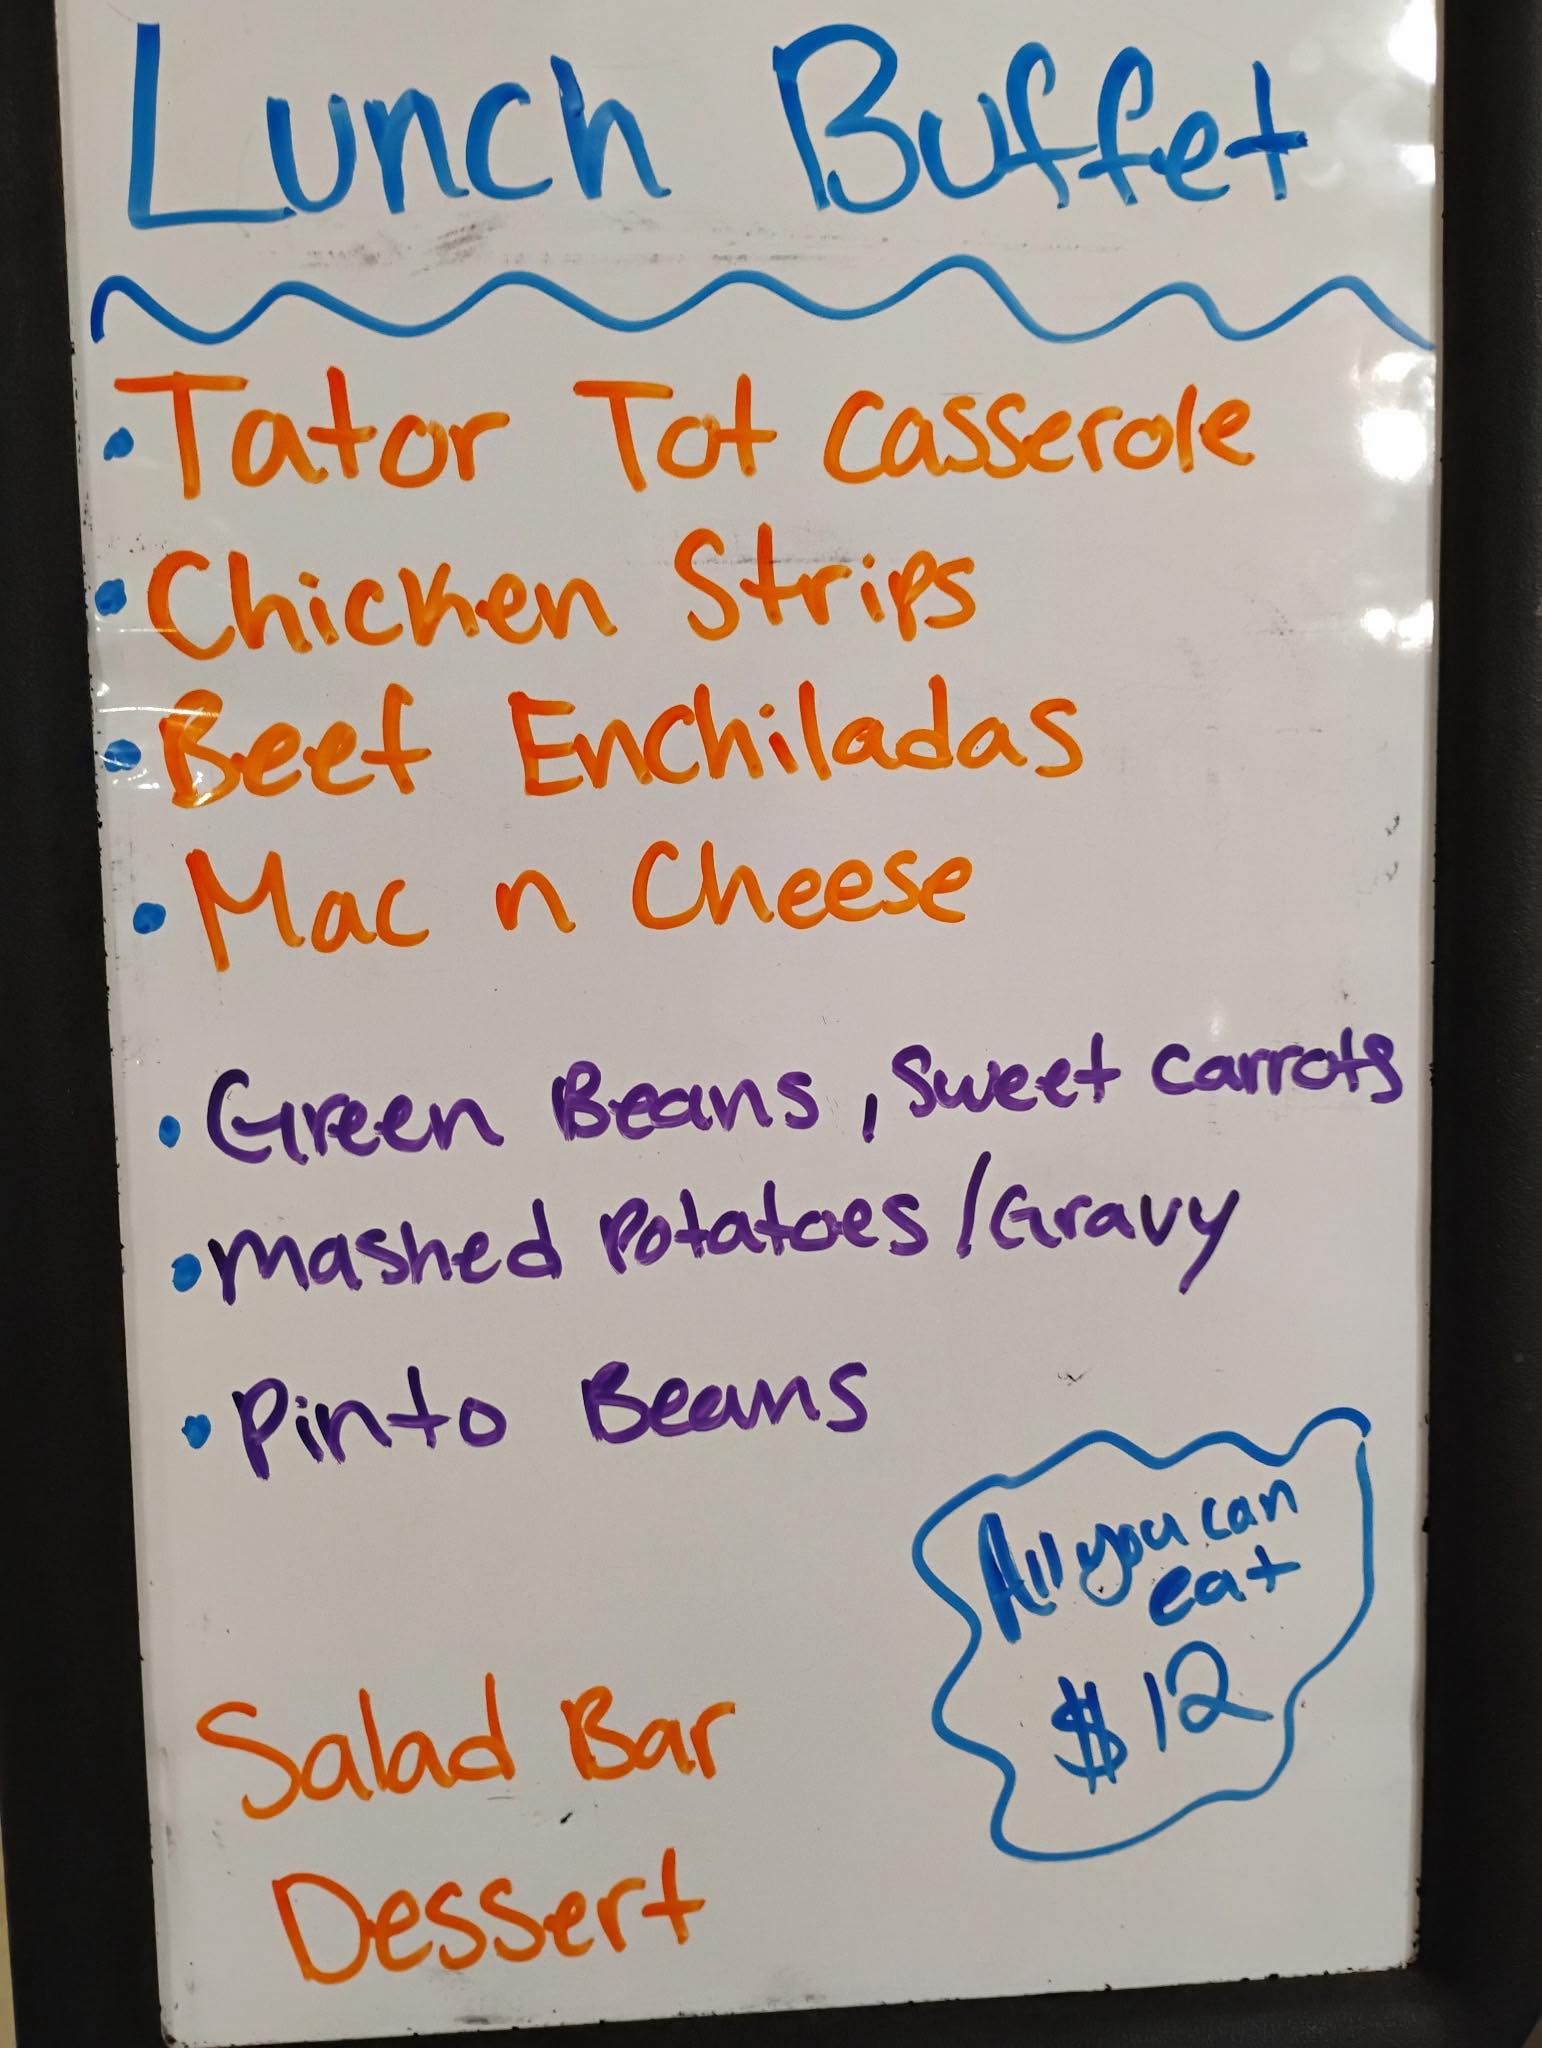 Lunch Buffet
• Tator Tot Casserole
• Chicken Strips
• Beef Enchiladas
• Mac n Cheese
• Green Beans, Sweet Carrots
• Mashed Potatoes/Gravy
• Pinto Beans
All you can
eat
$12
Salad Bar
Dessert